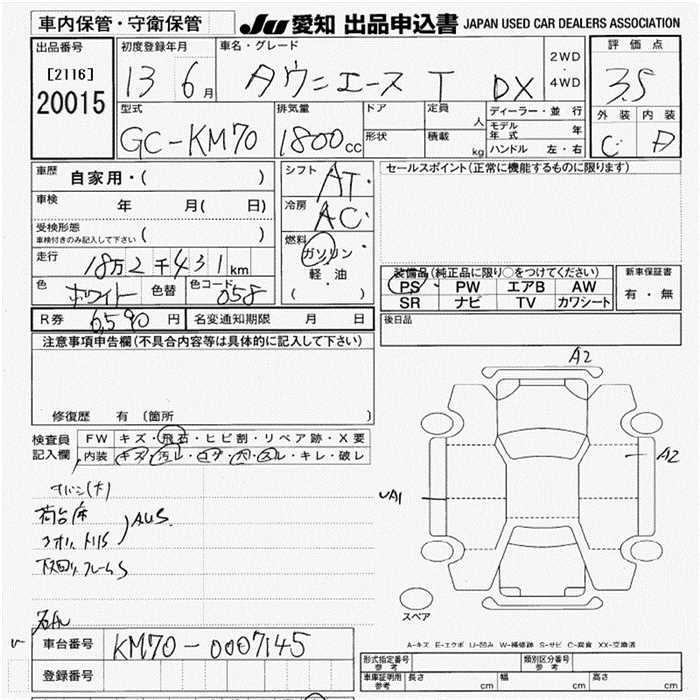 車内保管・守衛保管
JU 愛知 出品申込書 JAPAN USED CAR DEALERS ASSOCIATION
出品番号
[2116]
20015
初度登録年月
13 6月
車名・グレード
タウンエース T DX
2WD
・
4WD
評価点
3.5
外装 内装
C D
型式
GC-KM70
排気量
1800cc
ドア
形状
定員 人
積載 kg
ディーラー・並行
モデル年式 年
ハンドル 左・右
車歴 自家用・( )
車検 年 月( 日)
受検形態
車検付きのみ記入して下さい ( )
走行 18万2千431km
色 ホワイト 色替 色コード 058
シフト AT
冷房 AC
燃料
ガソリン
軽・油
( )
セールスポイント(正常に機能するものに限ります)
装備品(純正品に限り○をつけてください)
PS PW エアB AW
SR ナビ TV カワシート
新車保証書
有・無
R券 6,590円 名変通知期限 月 日
後日品
注意事項申告欄(不具合内容等は具体的に記入して下さい)
修復歴 有 (箇所 )
検査員記入欄
FW キズ・飛石・ヒビ割・リペア跡・X要
内装 キズ・汚レ・コゲ・穴・スレ・キレ・破レ
荷台床
AUS
下回リフレームS
A2
A2
A1
スペア
A-キズ E-エクボ U-凹み W-補修跡 S-サビ C-腐食 XX-交換済
車台番号 KM70-0007145
登録番号
形式指定番号 参考
類別区分番号 参考
車庫証明用 参考 長さ cm 幅 cm 高さ cm